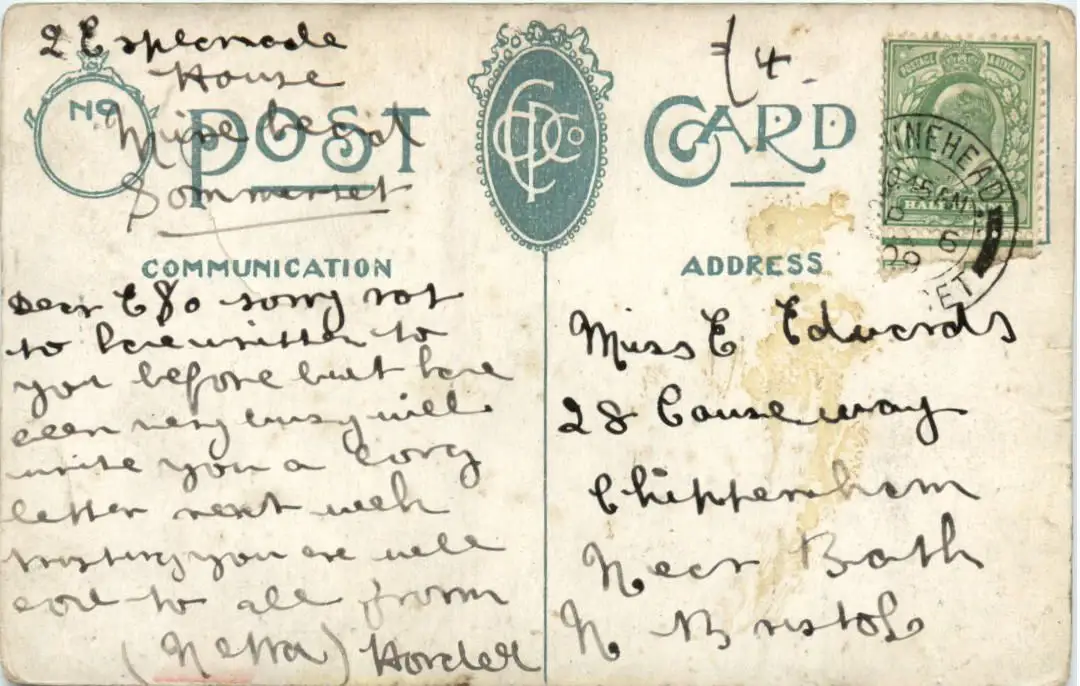 2 Esplanade
House
Minehead
Sommerset
No
POST CARD
CPDCo
COMMUNICATION
Dear E So sorry not
to have written to
you before but have
been very busy will
write you a long
letter next week
trusting you are well
love to all from
(Netta) Horder
4
POSTAGE REVENUE
HALF
MINEHEAD
15 AM
6
09
ET
ADDRESS
Miss E Edwards
28 Causeway
Chippenham
Near Bath
N Bristol